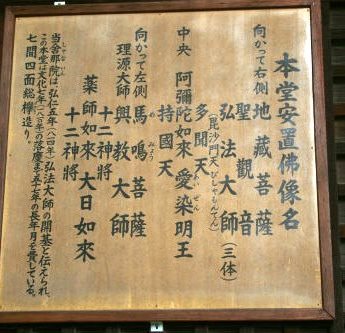 本堂安置佛像名
向かって右側 地藏菩薩
聖觀音
弘法大師(三体)
(毘沙門天 びしゃもんてん)
多聞天
中央 阿彌陀如來 愛染明王
持國天
向かって左側 馬鳴菩薩
理源大師 興教大師
十二神將
藥師如來 大日如來
十二神將
当舎那院は弘仁五年(八一四年)弘法大師の開基と伝えられ、
この本堂は文化七年(一八一〇年)の落慶まで五十七年の長年月を費している。
七間四面総欅造り。